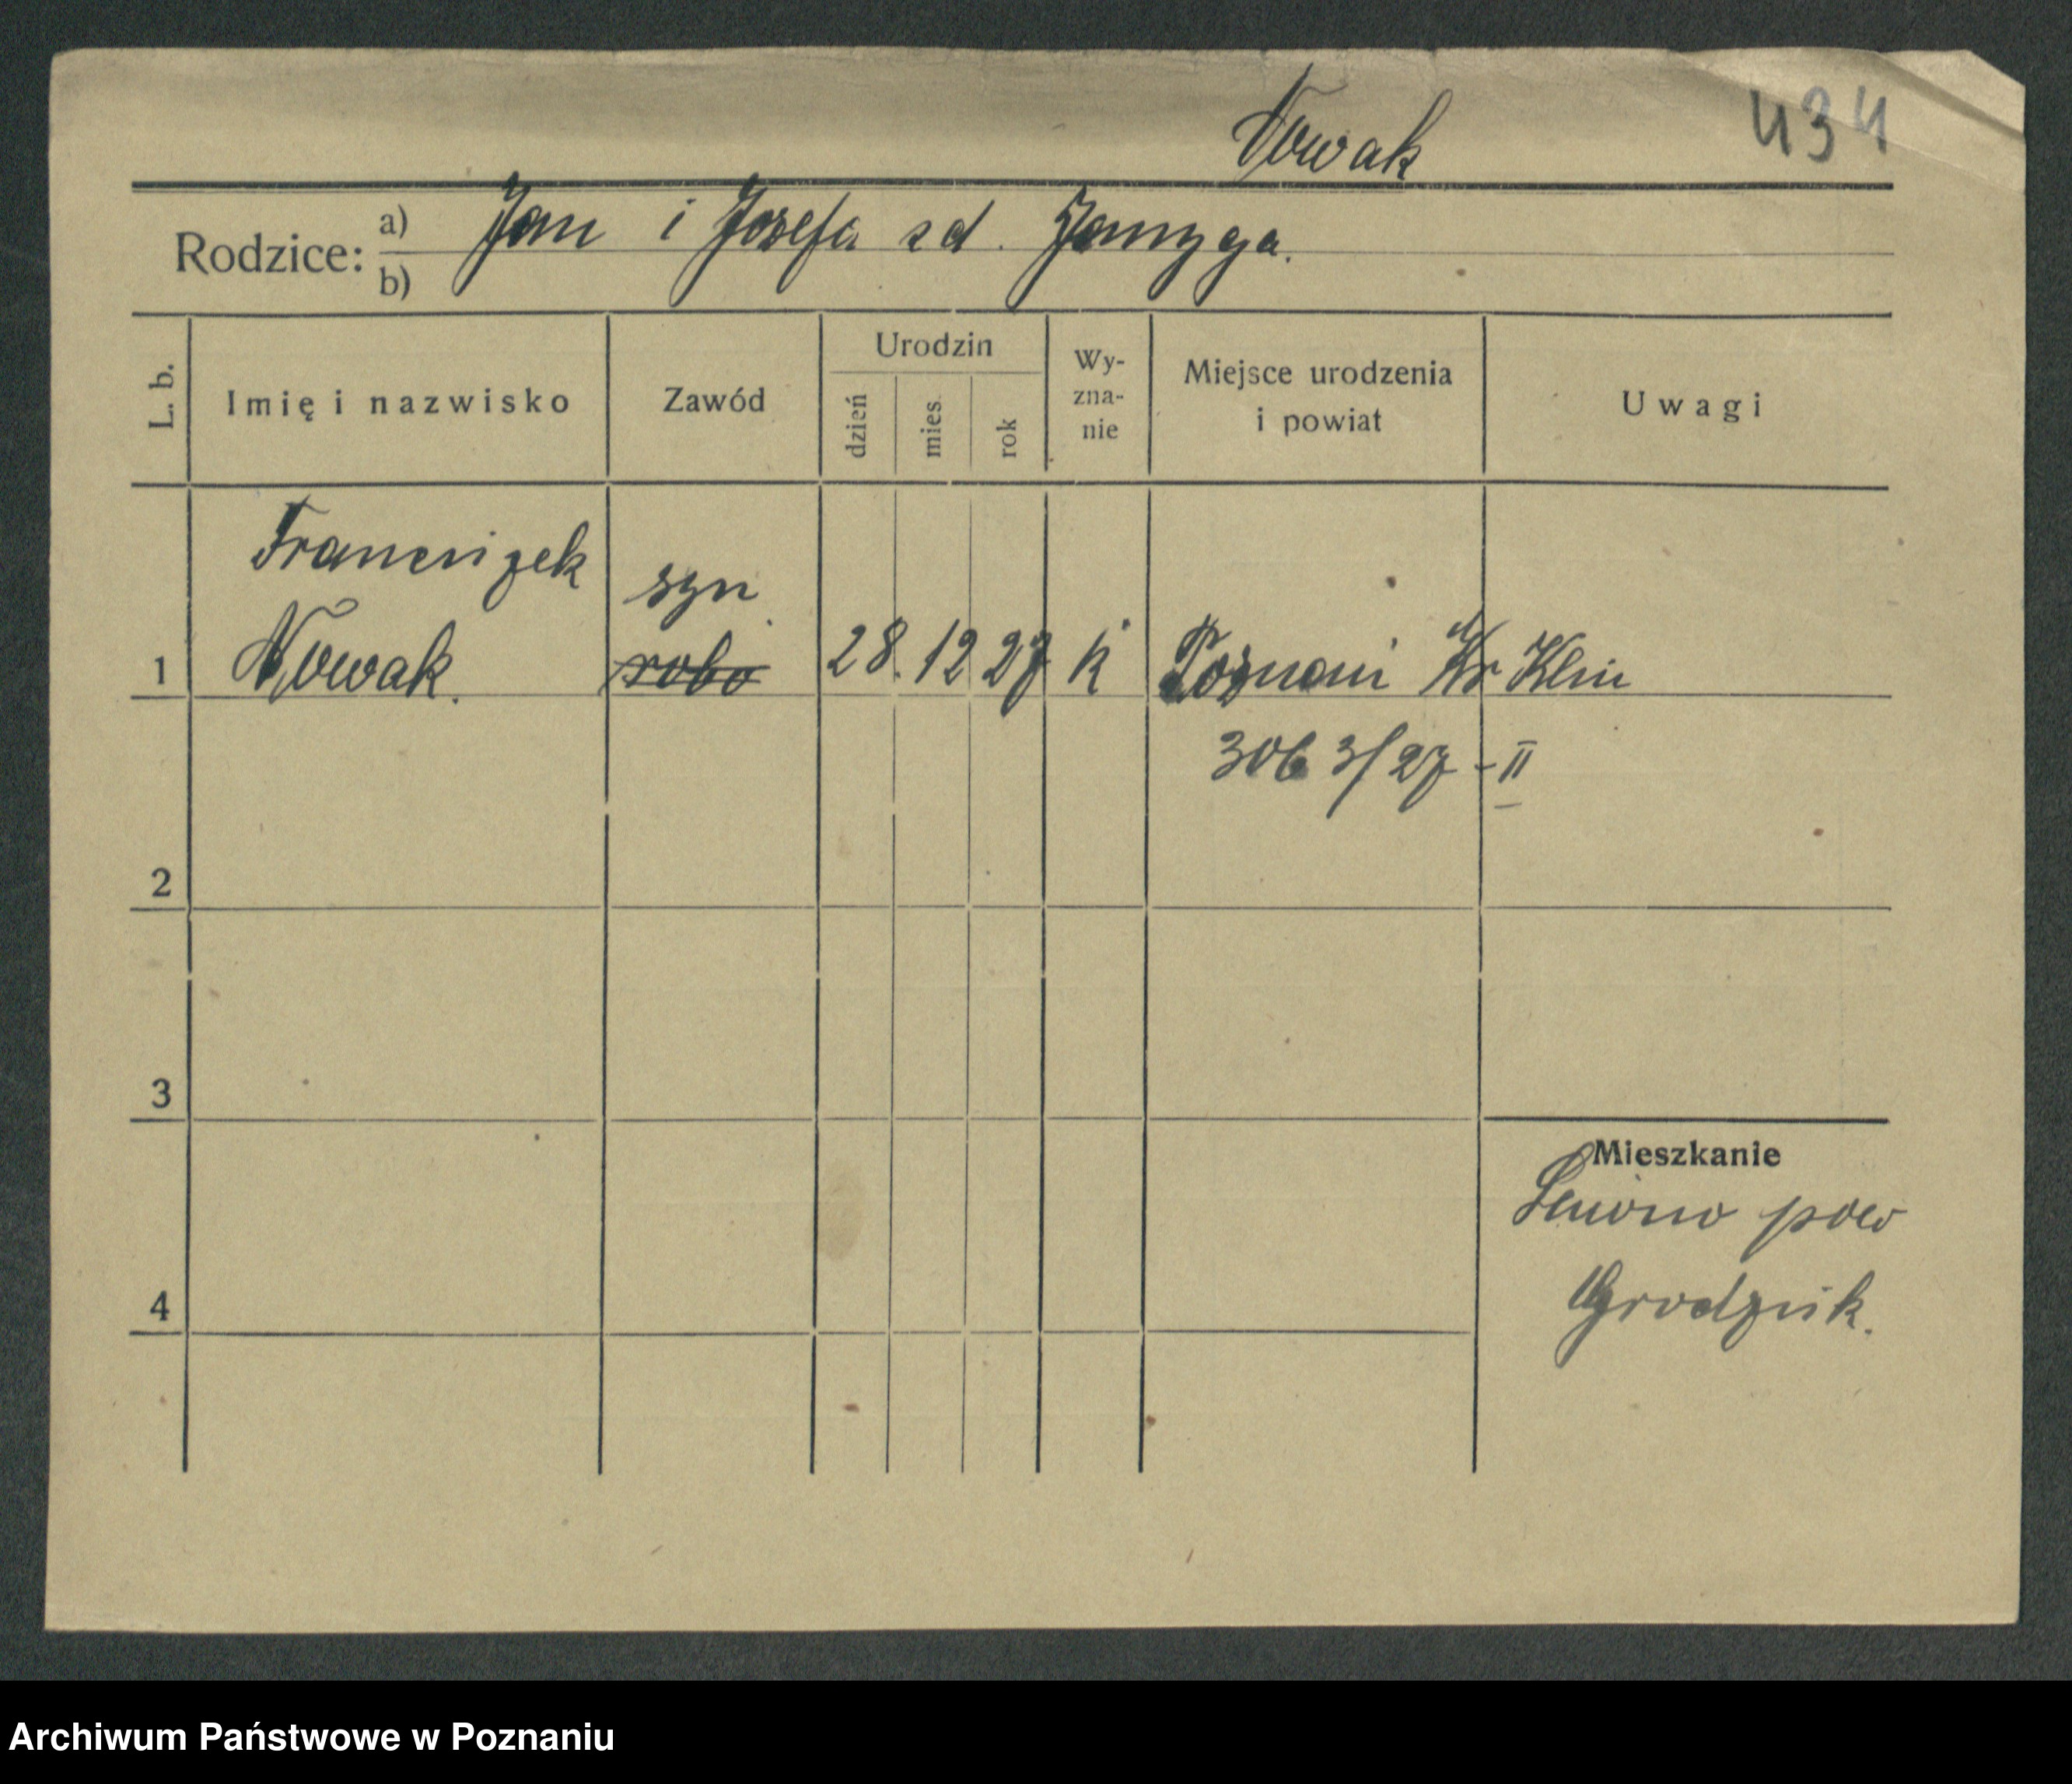 Nowak
434
Rodzice: a) b) Jan i Józefa zd.
L. b.
Imię i nazwisko
Zawód
Urodzin
dzień
mies.
rok
Wy-
zna-
nie
Miejsce urodzenia
i powiat
Uwagi
Franciszek
syn
1 Nowak. robo 28. 12 27 k Poznań Kr Klin
306 3/27 - II
2
3
Mieszkanie
pow
4 Grodzisk.
Archiwum Państwowe w Poznaniu